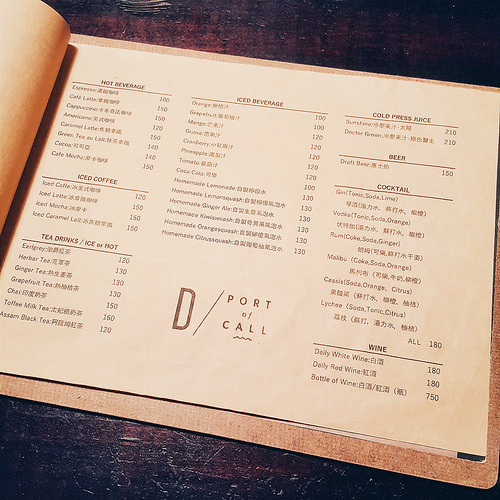 HOT BEVERAGE
Espresso:濃縮咖啡 100
Café Latte:拿鐵咖啡 150
Cappuccino:卡布奇諾咖啡 150
Americano:美式咖啡 120
Caramel Latte:焦糖拿鐵 150
Green Tea au Lait:抹茶拿鐵 140
Cocoa:可可亞 140
Cafe Mocha:摩卡咖啡 150
ICED COFFEE
Iced Coffe:冰美式咖啡 120
Iced Latte:冰拿鐵咖啡 150
Iced Mocha:冰摩卡 150
Iced Caramel Latte:冰焦糖拿鐵 150
TEA DRINKS / ICE or HOT
Earlgrey:伯爵紅茶 120
Herbar Tea:花草茶 130
Ginger Tea:熱生薑茶 130
Grapefruit Tea:熱柚桔茶 130
Chai:印度奶茶 150
Toffee Milk Tea:太妃糖奶茶 160
Assam Black Tea:阿薩姆紅茶 120
ICED BEVERAGE
Orange:柳橙汁 100
Grapefruit:葡萄柚汁 100
Mango:芒果汁 100
Guava:芭樂汁 120
Cranberry:小紅莓汁 120
Pineapple:鳳梨汁 120
Tomato:蕃茄汁 120
Coca Cola:可樂 120
Homemade Lemonade:自製檸檬水 100
Homemade Lemonsquash:自製檸檬氣泡水 130
Homemade Ginger Ale:自製生薑氣泡水 130
Homemade Kiwiswuash:自製奇異果氣泡水 130
Homemade Orangesquash:自製柳橙氣泡水 130
Homemade Citrussquash:自製葡萄柚氣泡水 130
D / PORT
of
CALL
COLD PRESS JUICE
Sunshine:冷壓果汁-太陽 210
Doctor Green:冷壓果汁-綠色醫生 210
BEER
Draft Beer:富士的 150
COCKTAIL
Gin(Tonic,Soda,Lime)
琴酒(湯力水、蘇打水、酸橙)
Vodka(Tonic,Soda,Orange)
伏特加(湯力水、蘇打水、酸橙)
Rum(Coke,Soda,Ginger)
朗姆(可樂,蘇打水干薑)
Malibu (Coke,Soda,Orange)
馬利布 (可樂,牛奶,柳橙)
Cassis(Soda,Orange, Citrus)
黑醋栗 (蘇打水, 柳橙, 柚桔)
Lychee (Soda,Tonic,Citrus)
荔枝 (蘇打, 湯力水, 柚桔)
ALL 180
WINE
Daily White Wine:白酒 180
Daily Red Wine:紅酒 180
Bottle of Wine:白酒/紅酒 (瓶) 750